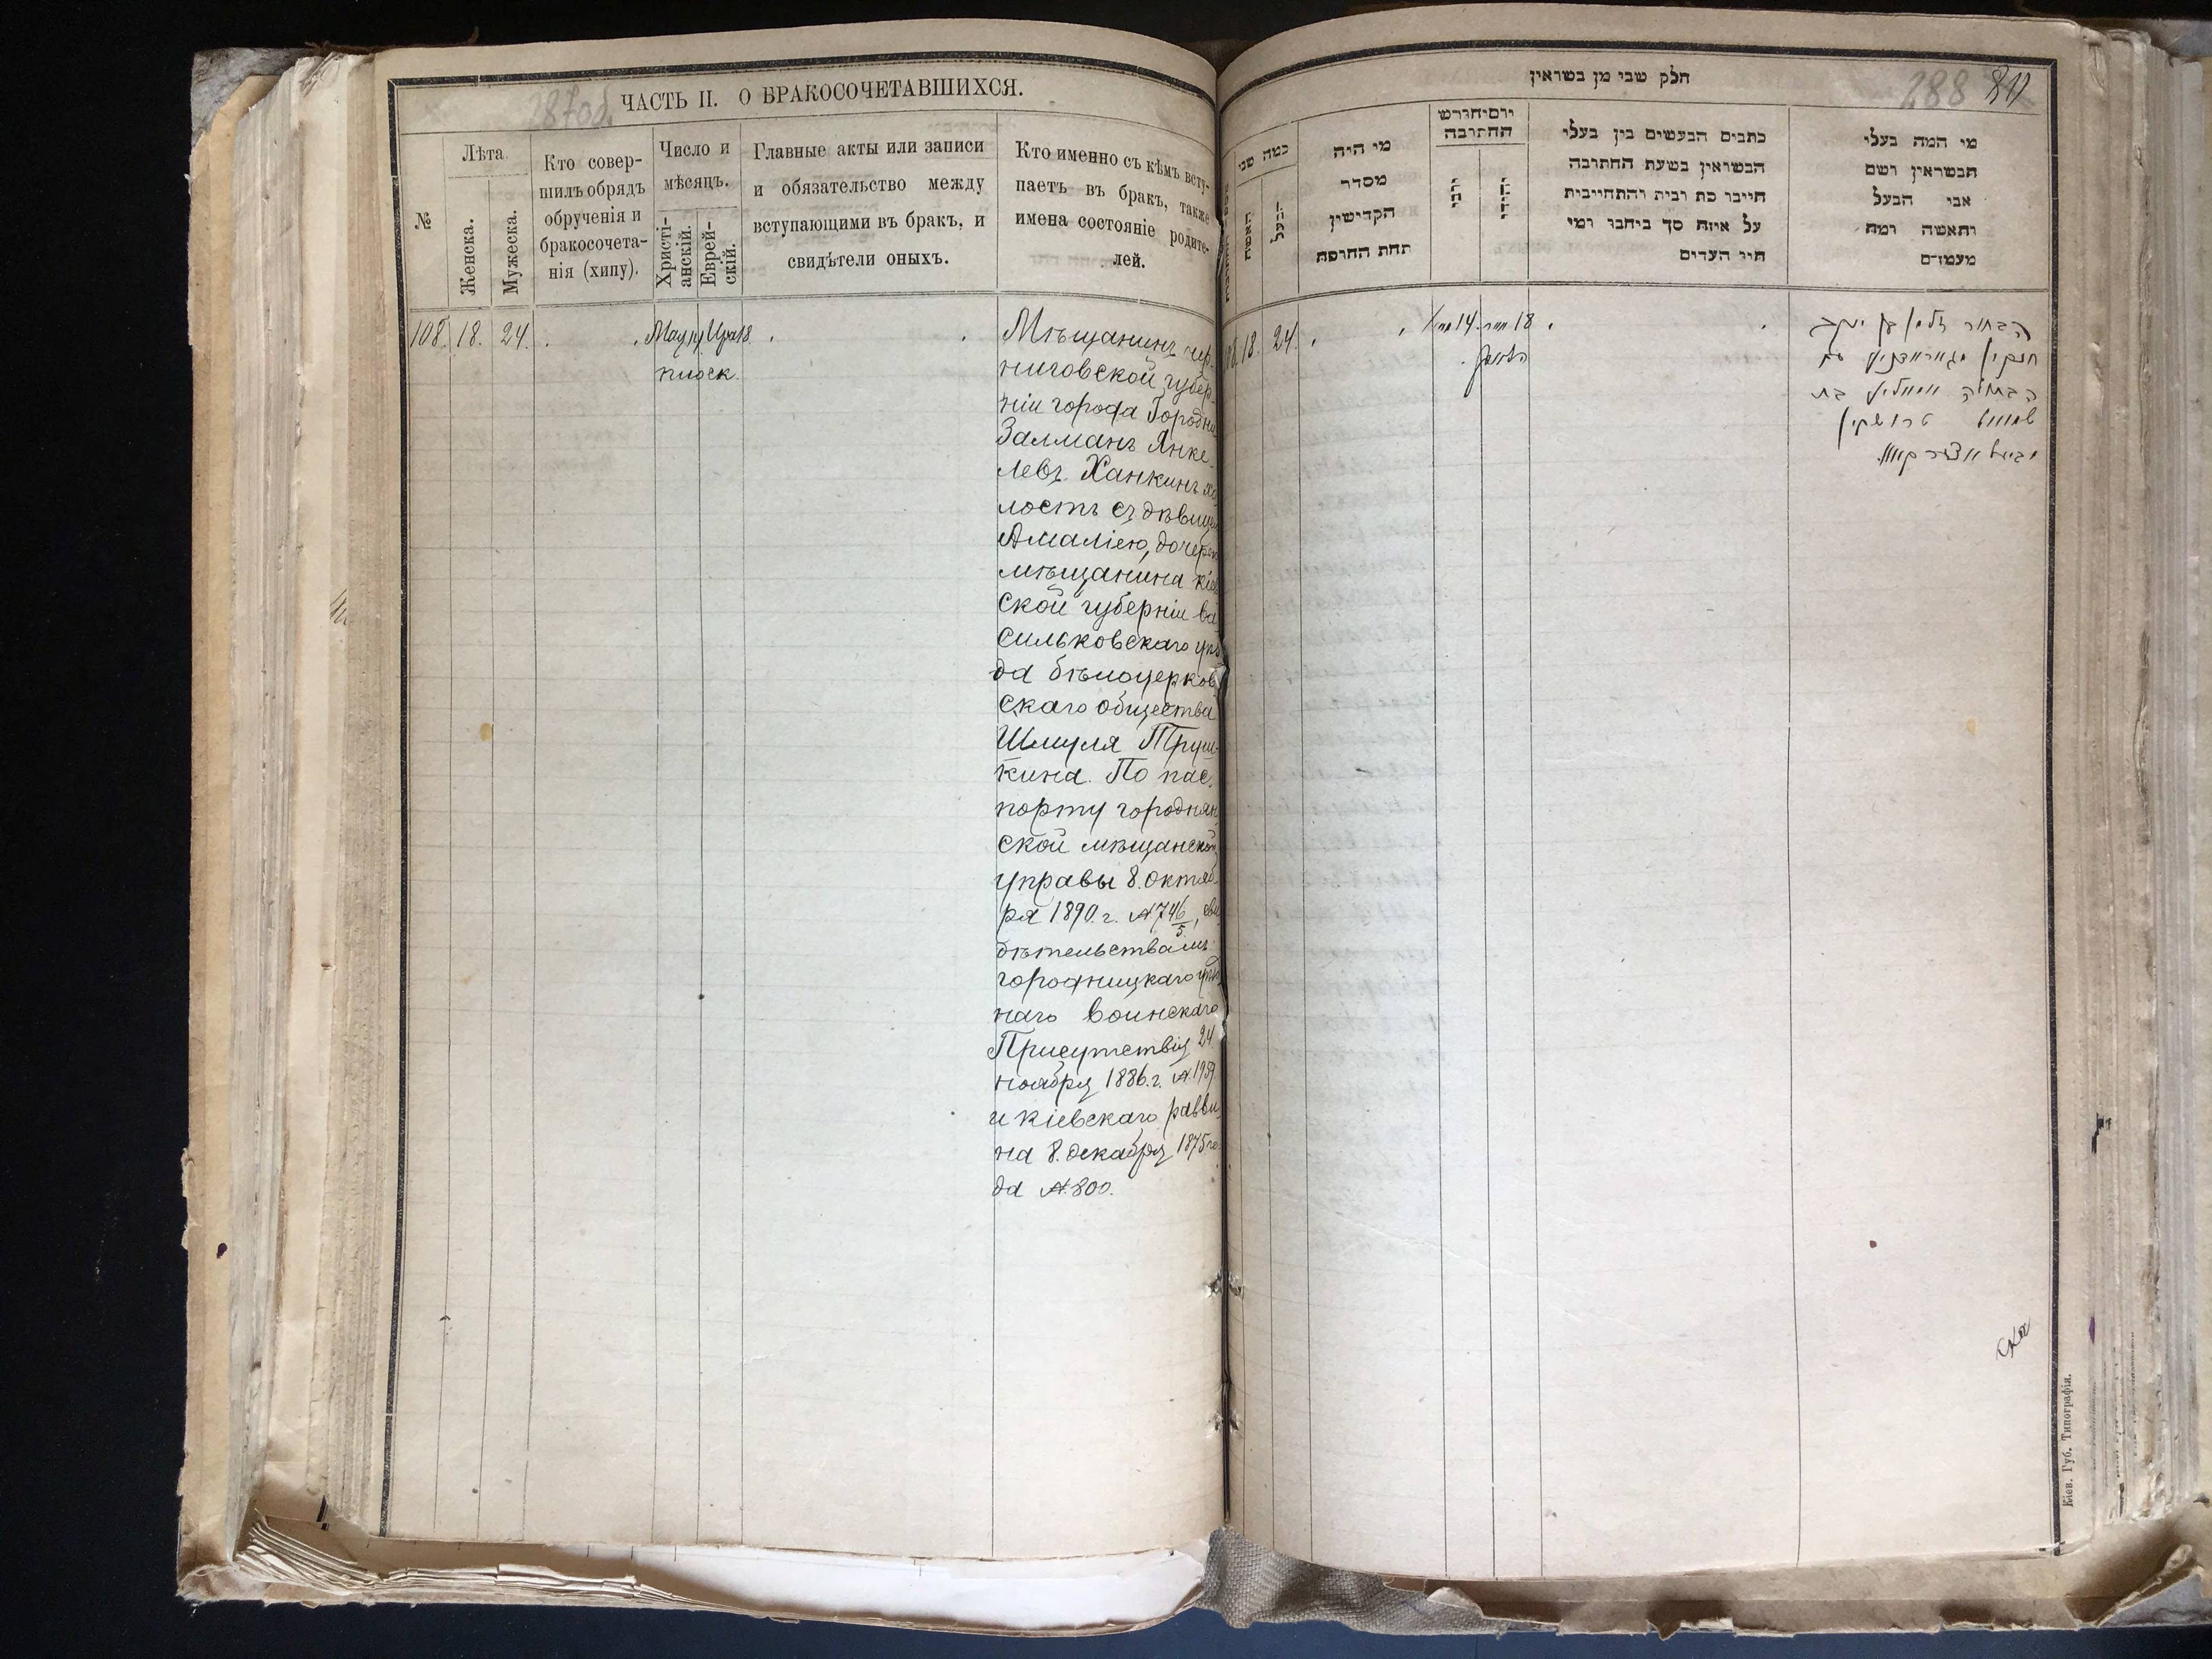 287об.
ЧАСТЬ II. О БРАКОСОЧЕТАВШИХСЯ.
№
Лѣта
Женска.
Мужеска.
Кто совер-
шилъ обрядъ
обрученія и
бракосочета-
нія (хипу).
Число и
мѣсяцъ.
Христі-
анскій.
Еврей-
скій.
Главные акты или записи
и обязательство между
вступающими въ бракъ, и
свидѣтели оныхъ.
Кто именно съ кѣмъ всту-
паетъ въ бракъ, также
имена состояніе родите-
лей.
108. 18. 24.
Мѣщанинъ чер-
ниговской губер-
ніи города Городни
Залманъ Янке-
левъ Ханкинъ хо-
лостъ съ дѣвицею
Амаліею, дочерью
мѣщанина кіев
ской губерніи ва-
сильковскаго уѣз
да бѣлоцерков
скаго общества
Шмуля Труш-
кина. По пас-
порту городнян
ской мѣщанской
управы 8. октяб-
ря 1890. г. № 746/5, сви
дѣтельствамъ
городницкаго уѣзд
наго воинскаго
Присутствія 24.
ноября 1886. г. №
и кіевскаго равви
на 8. декабря 1875 го
да № 800.
חלק שני מן בשראין
288 80
האשה
הבעל
כמה שני
מי היה
מסדר
הקדישין
תחת החופה
יוםיחודש
החתובה
כתבים הבעשים בין בעלי
הבשראין בשעת החתובה
חייבו כת רבית והתחייבית
על איזה סך ביחבו ומי
חיי העדים
מי המה בעלי
הבשראין ושם
אבי הבעל
והאשה ומה
מעמדם
18. 24.
14. 18
הבחור זלמן בן יעקב
חנקין עם
בת
טרושקין
Кіев. Губ. Типографія.